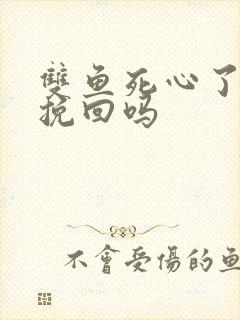 雙鱼死心了
挽回吗
不會受傷的鱼